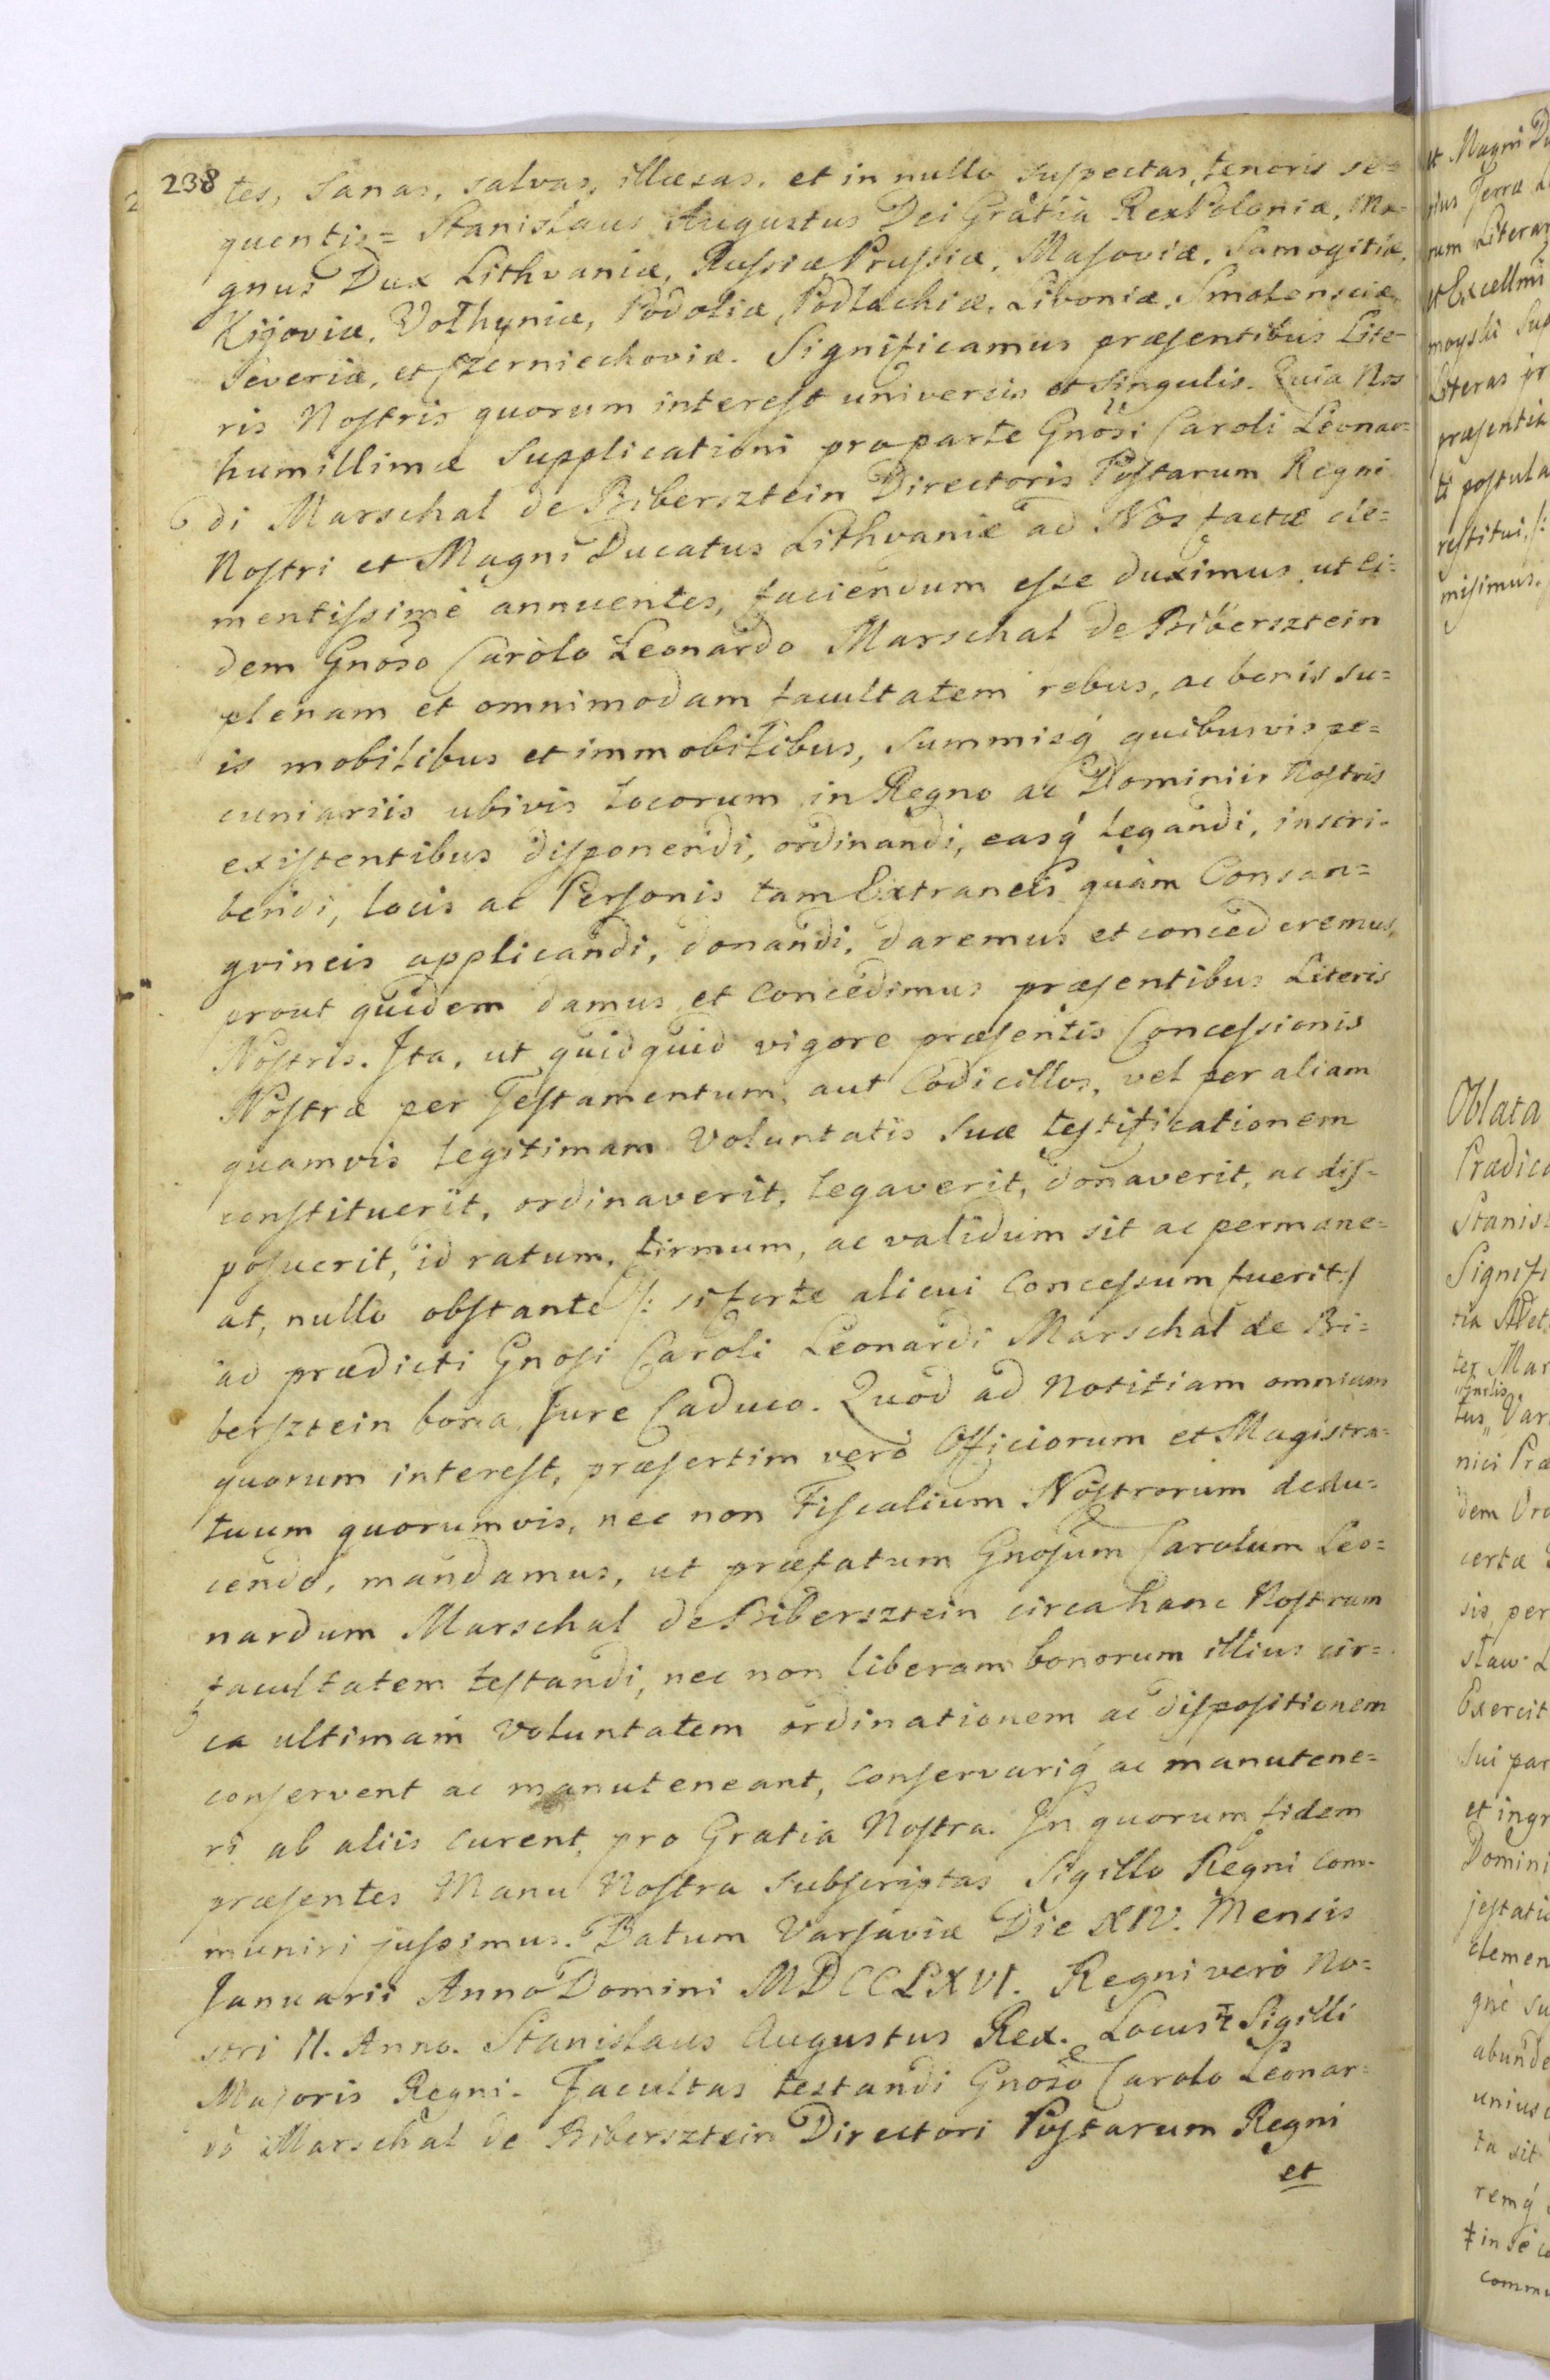 238
tes, sanas, salvas, illæsas, et in nullo suspectas, tenoris se=
quentis= Stanislaus Augustus Dei Gratia Rex Poloniæ, Ma=
gnus Dux Lithvaniæ, Russiæ Prussiæ, Masoviæ, Samogitiæ,
Kijoviæ, Volhyniæ, Podoliæ, Podlachiæ, Livoniæ, Smolensciæ,
Severiæ, et Czerniechoviæ. Significamus præsentibus Lite=
ris Nostris quorum interest universis et singulis. Quia Nos
humillimæ supplicationi pro parte Gnosi Caroli Leonar=
di Marschal de Bibersztein Directoris Postarum Regni
Nostri et Magni Ducatus Lithvaniæ ad Nos factæ cle=
mentissimè annuentes, faciendum esse duximus, ut ei=
dem Gnoso Carolo Leonardo Marschal de Bibersztein
plenam et omnimodam facultatem rebus, ac bonis su=
is mobilibus et immobilibus, summisq́ quibusvis pe=
cuniariis ubivis locorum in Regno ac Dominiis Nostris
existentibus disponendi, ordinandi, easq́ legandi, inscri=
bendi, locis ac Personis tam Extraneis quàm Consan=
gvineis applicandi, donandi, daremus et concederemus,
prout quidem damus et concedimus præsentibus Literis
Nostris. Ita, ut quidquid vigore præsentis Concessionis
Nostræ per Testamentum, aut Codicillos, vel per aliam
quamvis legitimam voluntatis suæ testificationem
constituerit, ordinaverit, legaverit, donaverit, ac dis=
posuerit, id ratum, firmum, ac validum sit ac permane=
at, nullo obstante /: si forte alicui Concessum fuerit :/
ad prædicti Gnosi Caroli Leonardi Marschal de Bi=
bersztein bona, Jure Caduco. Quod ad notitiam omnium
quorum interest, præsertim verò Officiorum et Magistra=
tuum quorumvis, nec non Fiscalium Nostrorum dedu=
cendo, mandamus, ut præfatum Gnosum Carolum Leo=
nardum Marschal de Bibersztein circa hanc Nostram
facultatem testandi, nec non liberam bonorum illius cir=
ca ultimam voluntatem ordinationem ac dispositionem
conservent ac manuteneant, conservariq́ ac manutene=
ri ab aliis curent, pro Gratia Nostra. In quorum fidem
præsentes Manu Nostra subscriptas Sigillo Regni Com=
muniri jussimus. Datum Varsaviæ Die XIV. Mensis
Januarii Anno Domini MDCCLXVI. Regni verò No=
stri II. Anno. Stanislaus Augustus Rex. Locus Sigilli
Majoris Regni. Facultas testandi Gnoso Carolo Leonar=
do Marschal de Bibersztein Directori Postarum Regni
et
et Magni Du
Terræ
rum Literar
et Excellmi
moyski Sup
Literas pr
præsentis
ti postula
restitui, /:
misimus.
Oblata
Prædica
Stanis=
Signifi
ter Mar
tus, Var
nici Præ
dem Ord
certæ
sis, per
staw L
Exercit
sui par
et ingr
Domini
jestatis
clemen
gnè su
abunde
unius
ta sit
remq́
in se
commu